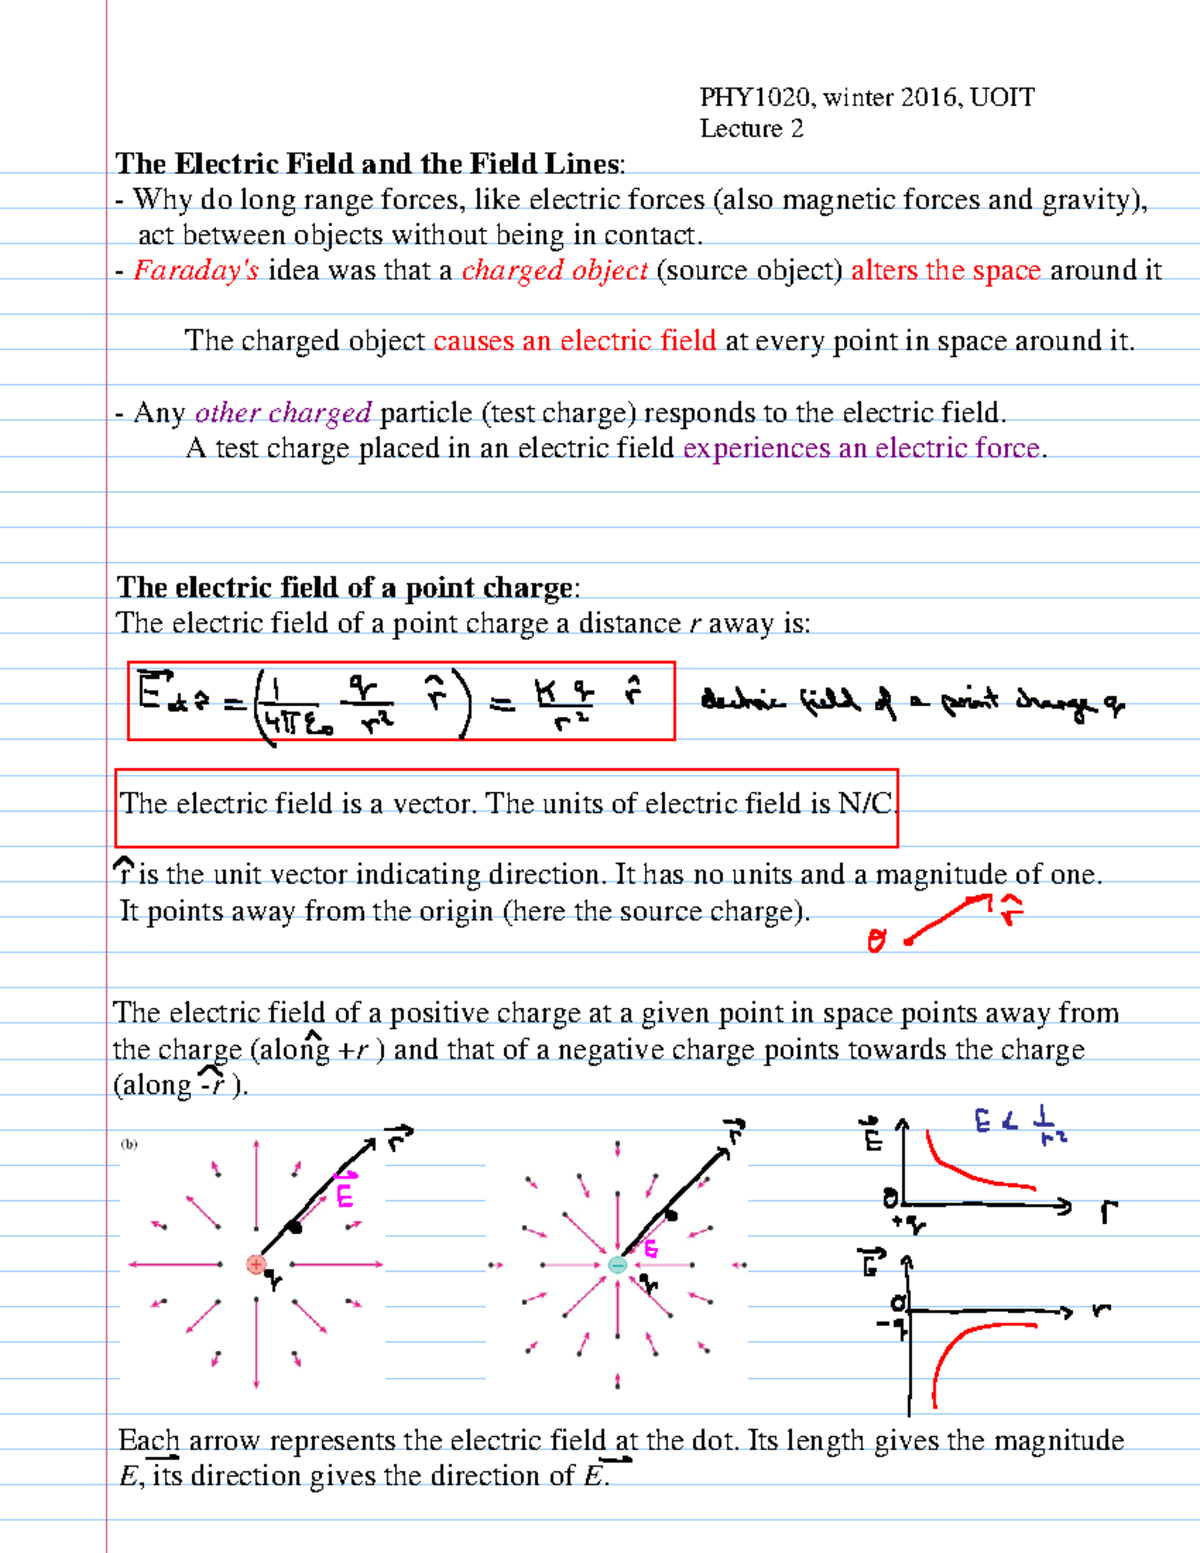 PHY1020, winter 2016, UOIT
Lecture 2
The Electric Field and the Field Lines:
- Why do long range forces, like electric forces (also magnetic forces and gravity),
act between objects without being in contact.
- Faraday's idea was that a charged object (source object) alters the space around it
The charged object causes an electric field at every point in space around it.
- Any other charged particle (test charge) responds to the electric field.
A test charge placed in an electric field experiences an electric force.
The electric field of a point charge:
The electric field of a point charge a distance r away is:
E⃗ at r = (1/4πε₀ q/r² r̂) = K q/r² r̂ electric field of a point charge q
The electric field is a vector. The units of electric field is N/C.
r̂ is the unit vector indicating direction. It has no units and a magnitude of one.
It points away from the origin (here the source charge).
0 r̂
The electric field of a positive charge at a given point in space points away from
the charge (along +r̂ ) and that of a negative charge points towards the charge
(along -r̂ ).
(b) r⃗ r⃗ E⃗ E ∝ 1/r²
E⃗ E
+ q − q
0 +q r
E⃗
0 -q r
Each arrow represents the electric field at the dot. Its length gives the magnitude
E, its direction gives the direction of E⃗.